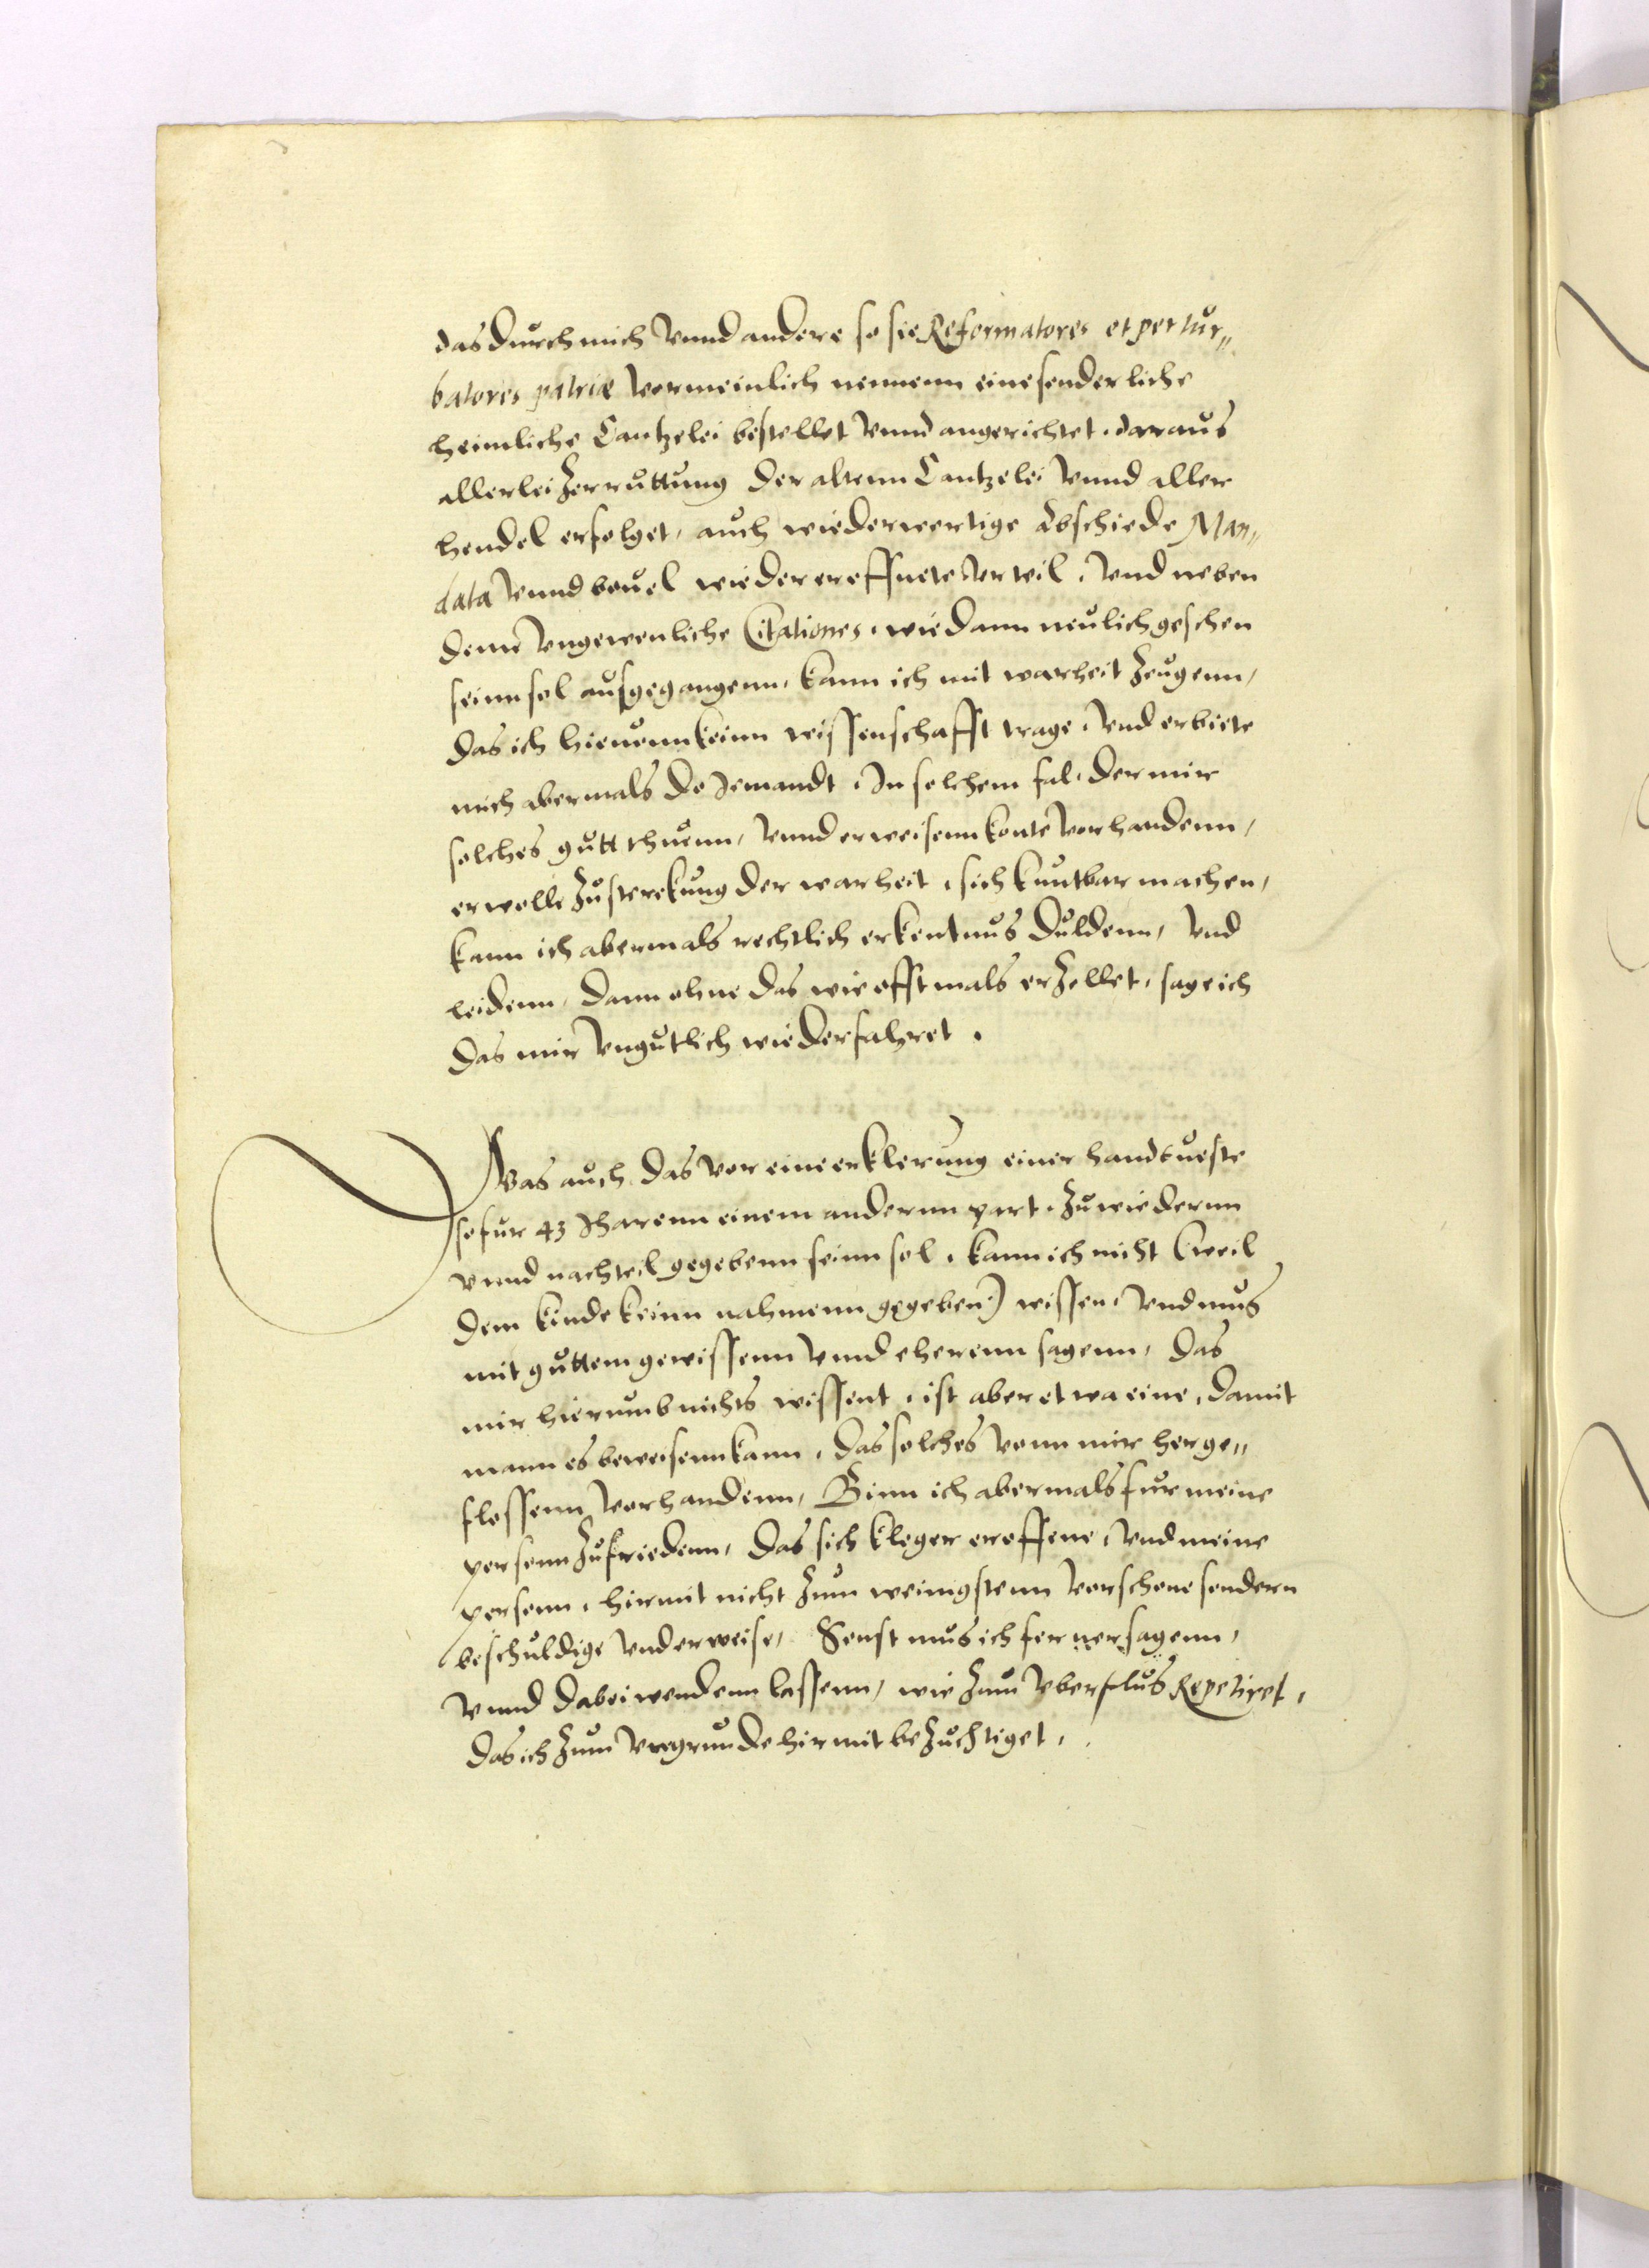 das durch mich vnnd andere so sie Reformatores et pertur„
batores patriæ vormeinlich nennenn eine sonderliche
heimliche Cantzelei bestellet vnnd angerichtet, daraus
allerlei Zerruttung der altenn Cantzelei vnnd aller
hendel erfolget, auch wiederwertige Abschiede Man„
data vnnd beuel wieder ereffnete vrteil, vnd neben
deme vngewenliche Citationes, wie dann neulich geschen
seinn sol ausgegangenn, kann ich mit warheit Zeugenn,
das ich hieruonn keinn wissenschafft trage, vnd erbiete
mich abermals do Jemandt, In solchem fal, der mir
solches gutt thuenn, vnnd erweisenn konte vorhandenn,
er wolle Zu sterckung der warheit, sich kuntbar machen,
kann ich abermals rechtlich erkentnus duldenn, vnd
leidenn, dann ohne das wie offtmals erZellet, sage ich
das mir vngutlich wiederfahret.
Was auch das vor eine erklerung einer handtueste
so fur 43 Jharenn einem andernn part, Zu wiedernn
vnnd nachteil gegebenn seinn sol, kann ich nicht (weil
dem kinde keinn nahmenn gegeben) wissen, vnd mus
mit guttem gewissenn vnnd eherenn sagenn, das
mir hierumb nichts wissent, ist aber etwa eine, damit
mann es beweisenn kann, das solches vonn mir herge„
flossenn vorhandenn, Binn ich abermals fur meine
personn Zufriedenn, das sich kleger ereffene, vnd meine
personn, hirmit nicht Zum weinigstenn vorschone sondern
beschuldige vnd erweise, Sonst mus ich ferner sagenn,
vnnd dabei wendenn lassenn, wie Zum vberflus Repetiret,
das ich Zum vngrunde hirmit beZuchtiget.